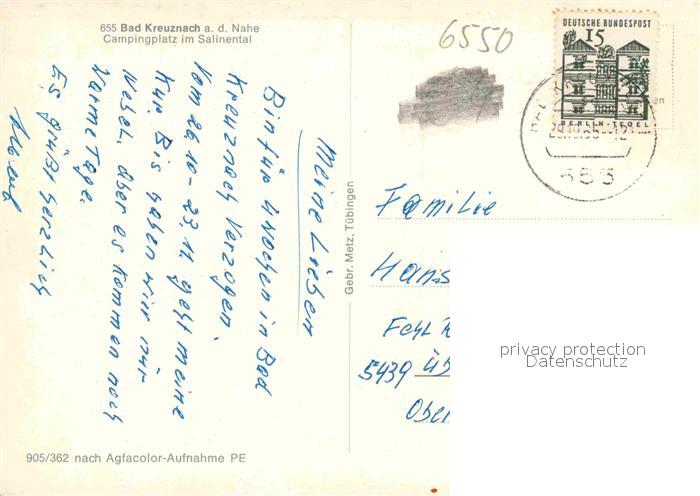 655 Bad Kreuznach a. d. Nahe
Campingplatz im Salinental
6550
DEUTSCHE BUNDESPOST
15
BERLIN-TEGEL
Meine Lieben
Bin für 4 Wochen in Bad
Kreuznach Verzogen.
Vom 26.10-23.11. geht meine
Kur. Bis haben wir nur
Nebel. Aber es kommen noch
Warme Tage.
Es grüßt herzlich
Gebr. Metz, Tübingen
Familie
Hans
Fehl R
5439 üb
Ober
privacy protection
Datenschutz
905/362 nach Agfacolor-Aufnahme PE